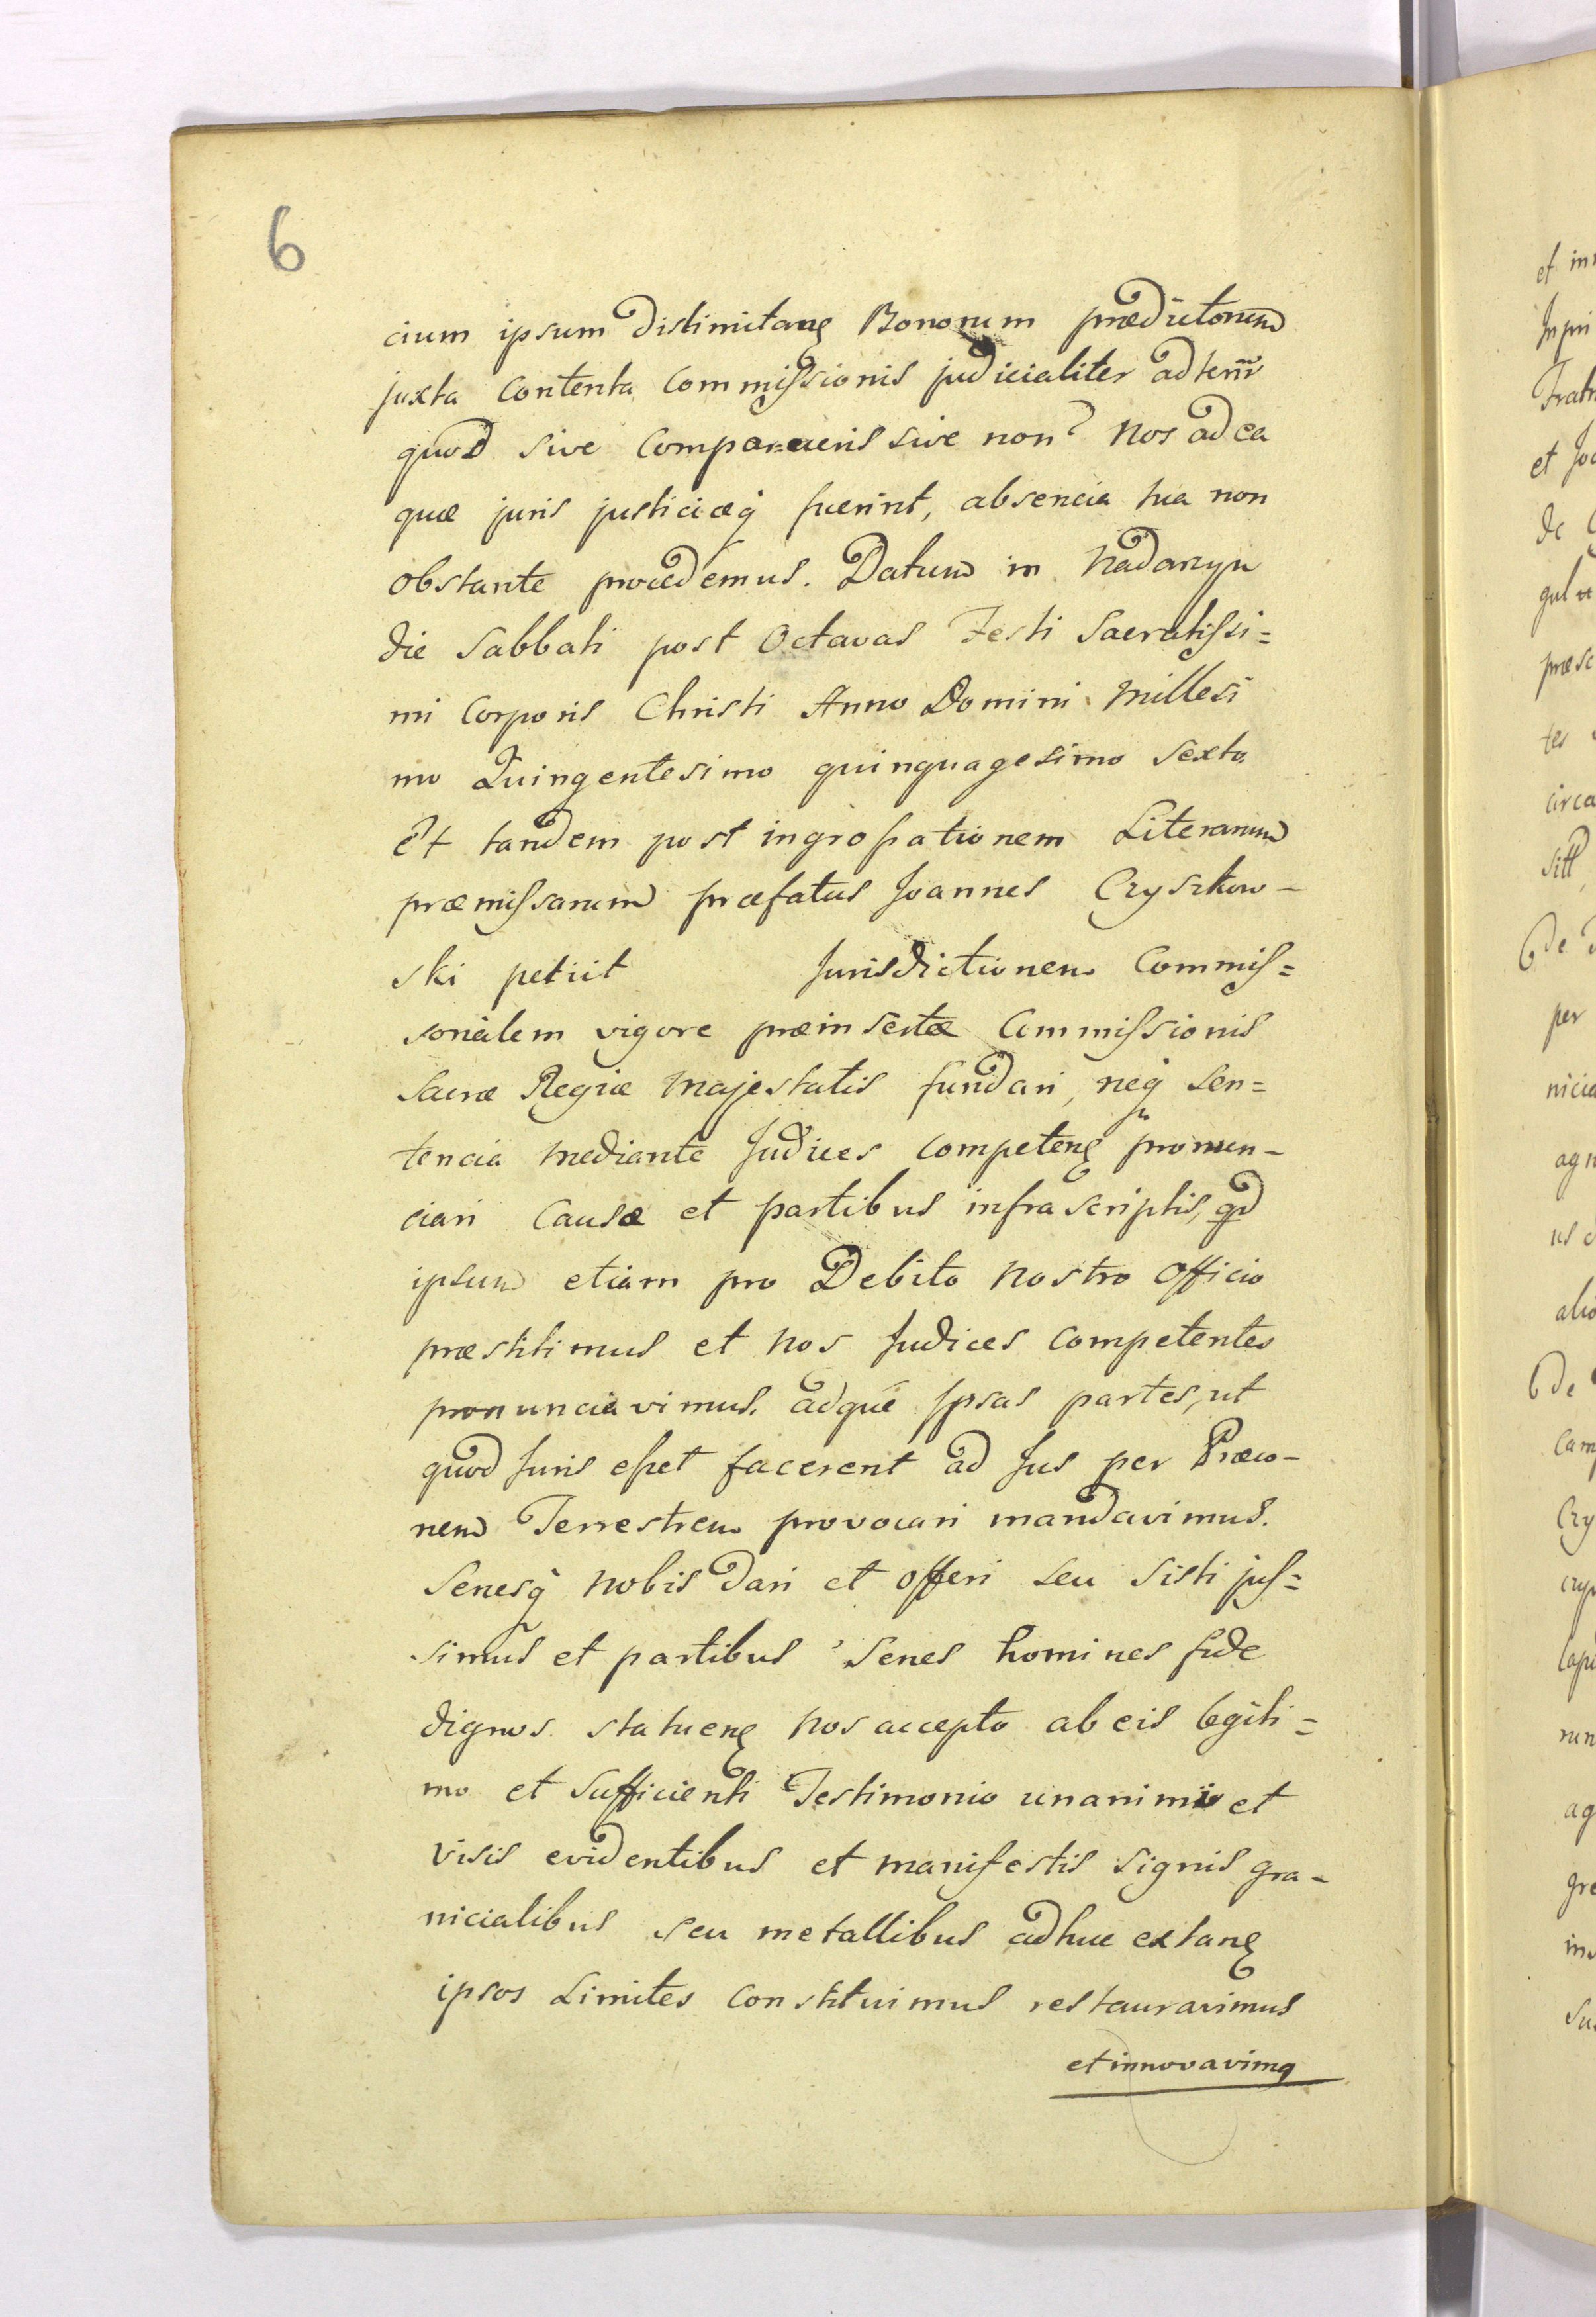 6
cium ipsum distimitang Bonorum prædictorum
juxta Contenta Commissionis judicialiter ad term̄
quod sive Compar=ueris sive non? Nos ad ea
quæ juris justiciæq fuerint, absencia tua non
obstante procedemus. Datum in Nadarzyn
die Sabbati post Octavas Festi Sacratissi=
mi Corporis Christi Anno Domini Millesi
mo Quingentesimo quinquagesimo Sexto
Et tandem post ingrossationem Literarum
præmissarum præfatus Joannes Czyszkow-
ski petiit Jurisdictionem Commis=
sorialem vigore præinsertæ Commissionis
Sacræ Regiæ Majestatis fundari, neq Sen=
tencia mediante Judices competeng pronun-
ciari Causæ et partibus infra scriptis, qd
ipsum etiam pro Debito Nostro Officio
præstitimus et Nos Judices Competentes
pronunciavimus. adque Ipsas partes, ut
quod Juris esset facerent ad Jus per Præco-
nem Terrestrem provocari mandavimus.
Senesq nobis dari et offeri seu Sisti jus=
simus et partibus Senes homines fide
dignos statueng Nos accepto ab eis legiti=
mo et Sufficienti Testimonio unanimio et
Visis evidentibus et manifestis Signis gra-
nicialibus seu metallibus adhuc extang
ipsos Limites Constituimus restauravimus
et innovavimq